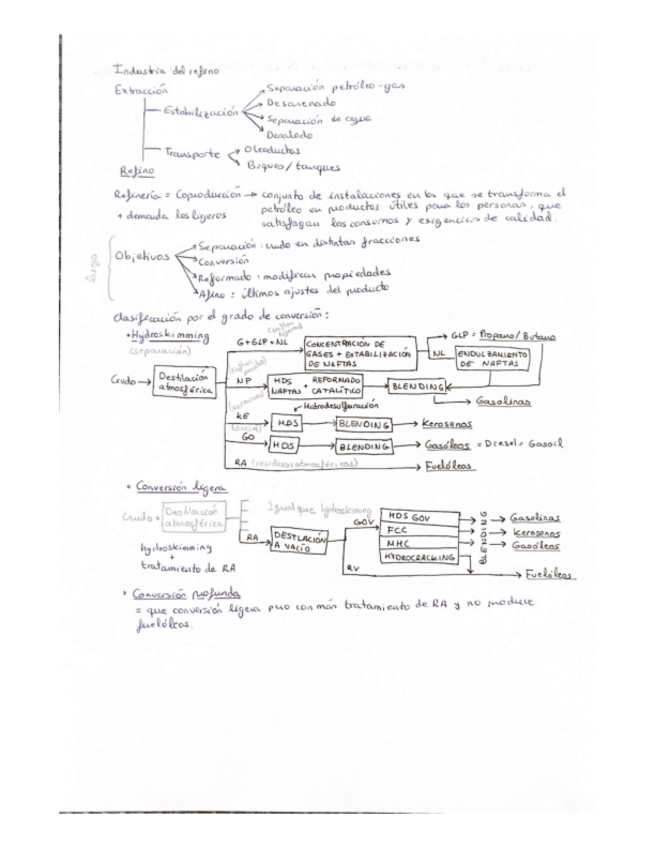 Industria del refino
Extracción
Estabilización
Separación petróleo-gas
Desarenado
Separación de agua
Desalado
Transporte
Oleoductos
Buques/tanques
Refino
Refinería = Coproducción → conjunto de instalaciones en los que se transforma el
+ demanda los ligeros
petróleo en productos útiles para las personas, que
satisfagan los consumos y exigencias de calidad.
Objetivos
Separación: crudo en distintas fracciones
Conversión
Reformado: modificar propiedades
Afino: últimos ajustes del producto
Clasificación por el grado de conversión:
• Hydroskimming
(separación)
Crudo →
Destilación
atmosférica
G+GLP+NL
CONCENTRACION DE
GASES + ESTABILIZACIÓN
DE NAFTAS
GLP = Propano/Butano
NL
ENDULZAMIENTO
DE NAFTAS
NP
HDS
NAFTAS
+
REFORMADO
CATALÍTICO
BLENDING
Gasolinas
Hidrodesulfuración
KE
HDS
BLENDING
Kerosenos
GO
HDS
BLENDING
Gasóleos = Diesel = Gasoil
RA (residuos atmosféricos)
Fuelóleos
• Conversión ligera
Crudo →
Destilación
atmosférica
Igual que hydroskimming
hydroskimming
+
tratamiento de RA
RA
DESTILACIÓN
A VACÍO
GOV
HDS GOV
FCC
MHC
HYDROCRACKING
BLENDING
Gasolinas
Kerosenos
Gasóleos
RV
Fuelóleos
• Conversión profunda
= que conversión ligera pero con más tratamiento de RA y no produce
fuelóleos.